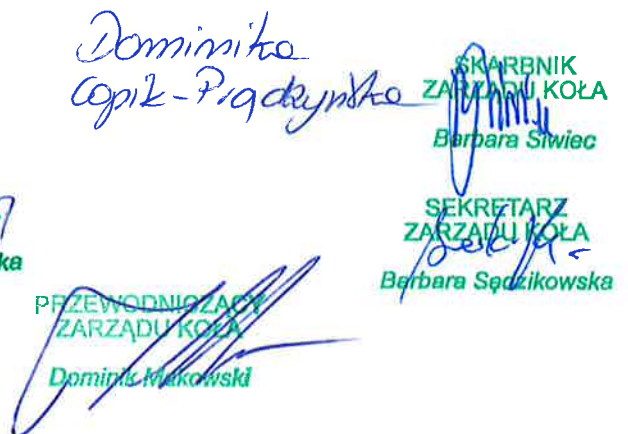 Dominika
Copik-Prądzyńska
SKARBNIK
ZARZĄDU KOŁA
Barbara Siwiec
SEKRETARZ
ZARZĄDU KOŁA
Barbara Sędzikowska
ka
PRZEWODNICZĄCY
ZARZĄDU KOŁA
Dominik Makowski